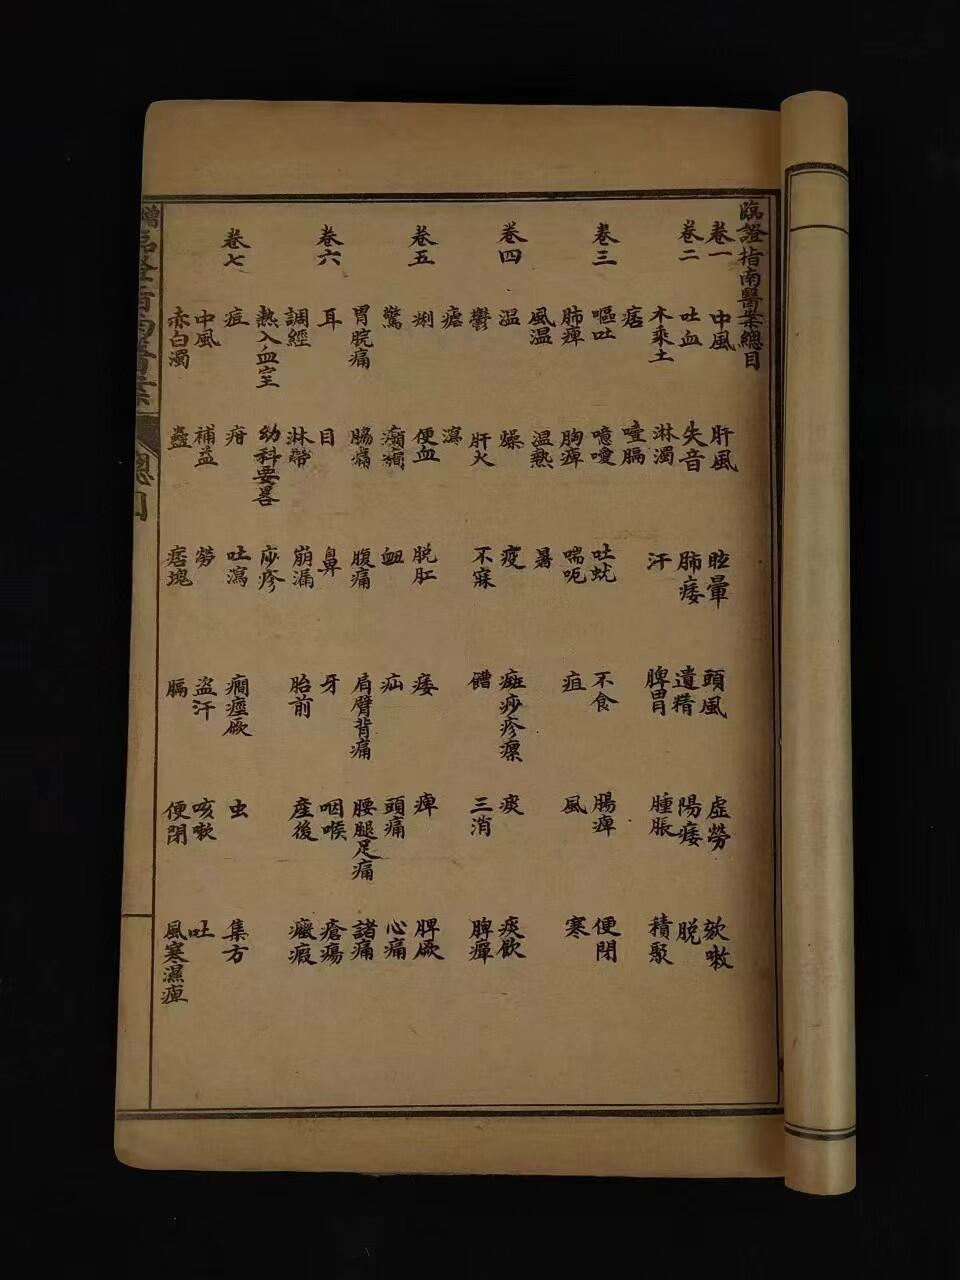 臨證指南醫案總目
卷一 中風 肝風 眩暈 頭風 虛勞 欬嗽
卷二 吐血 失音 肺痿 遺精 陽痿 脫
木乘土 淋濁 汗 脾胃 腫脹 積聚
痞 噎膈
卷三 嘔吐 噫噯 吐蚘 不食 腸痺 便閉
肺痺 胸痺 喘呃 疽 風 寒
風温 温熱 暑
卷四 温 燥 疫 斑痧疹瘰 痰 痰飲
鬱 肝火 不寐 嘈 三消 脾癉
瘧 瀉
卷五 痢 便血 脱肛 痿 痺 脾厥
驚 癲癇 衂 疝 頭痛 心痛
胃脘痛 脇痛 腹痛 肩臂背痛 腰腿足痛 諸痛
卷六 耳 目 鼻 牙 咽喉 瘡瘍
調經 淋帶 崩漏 胎前 產後 癥瘕
熱入血室 幼科要畧 痧疹
卷七 痘 疳 吐瀉 癇痙厥 虫 集方
中風 補益 勞 盜汗 咳嗽 吐
赤白濁 蠱 痞塊 膈 便閉 風寒濕痺
總目